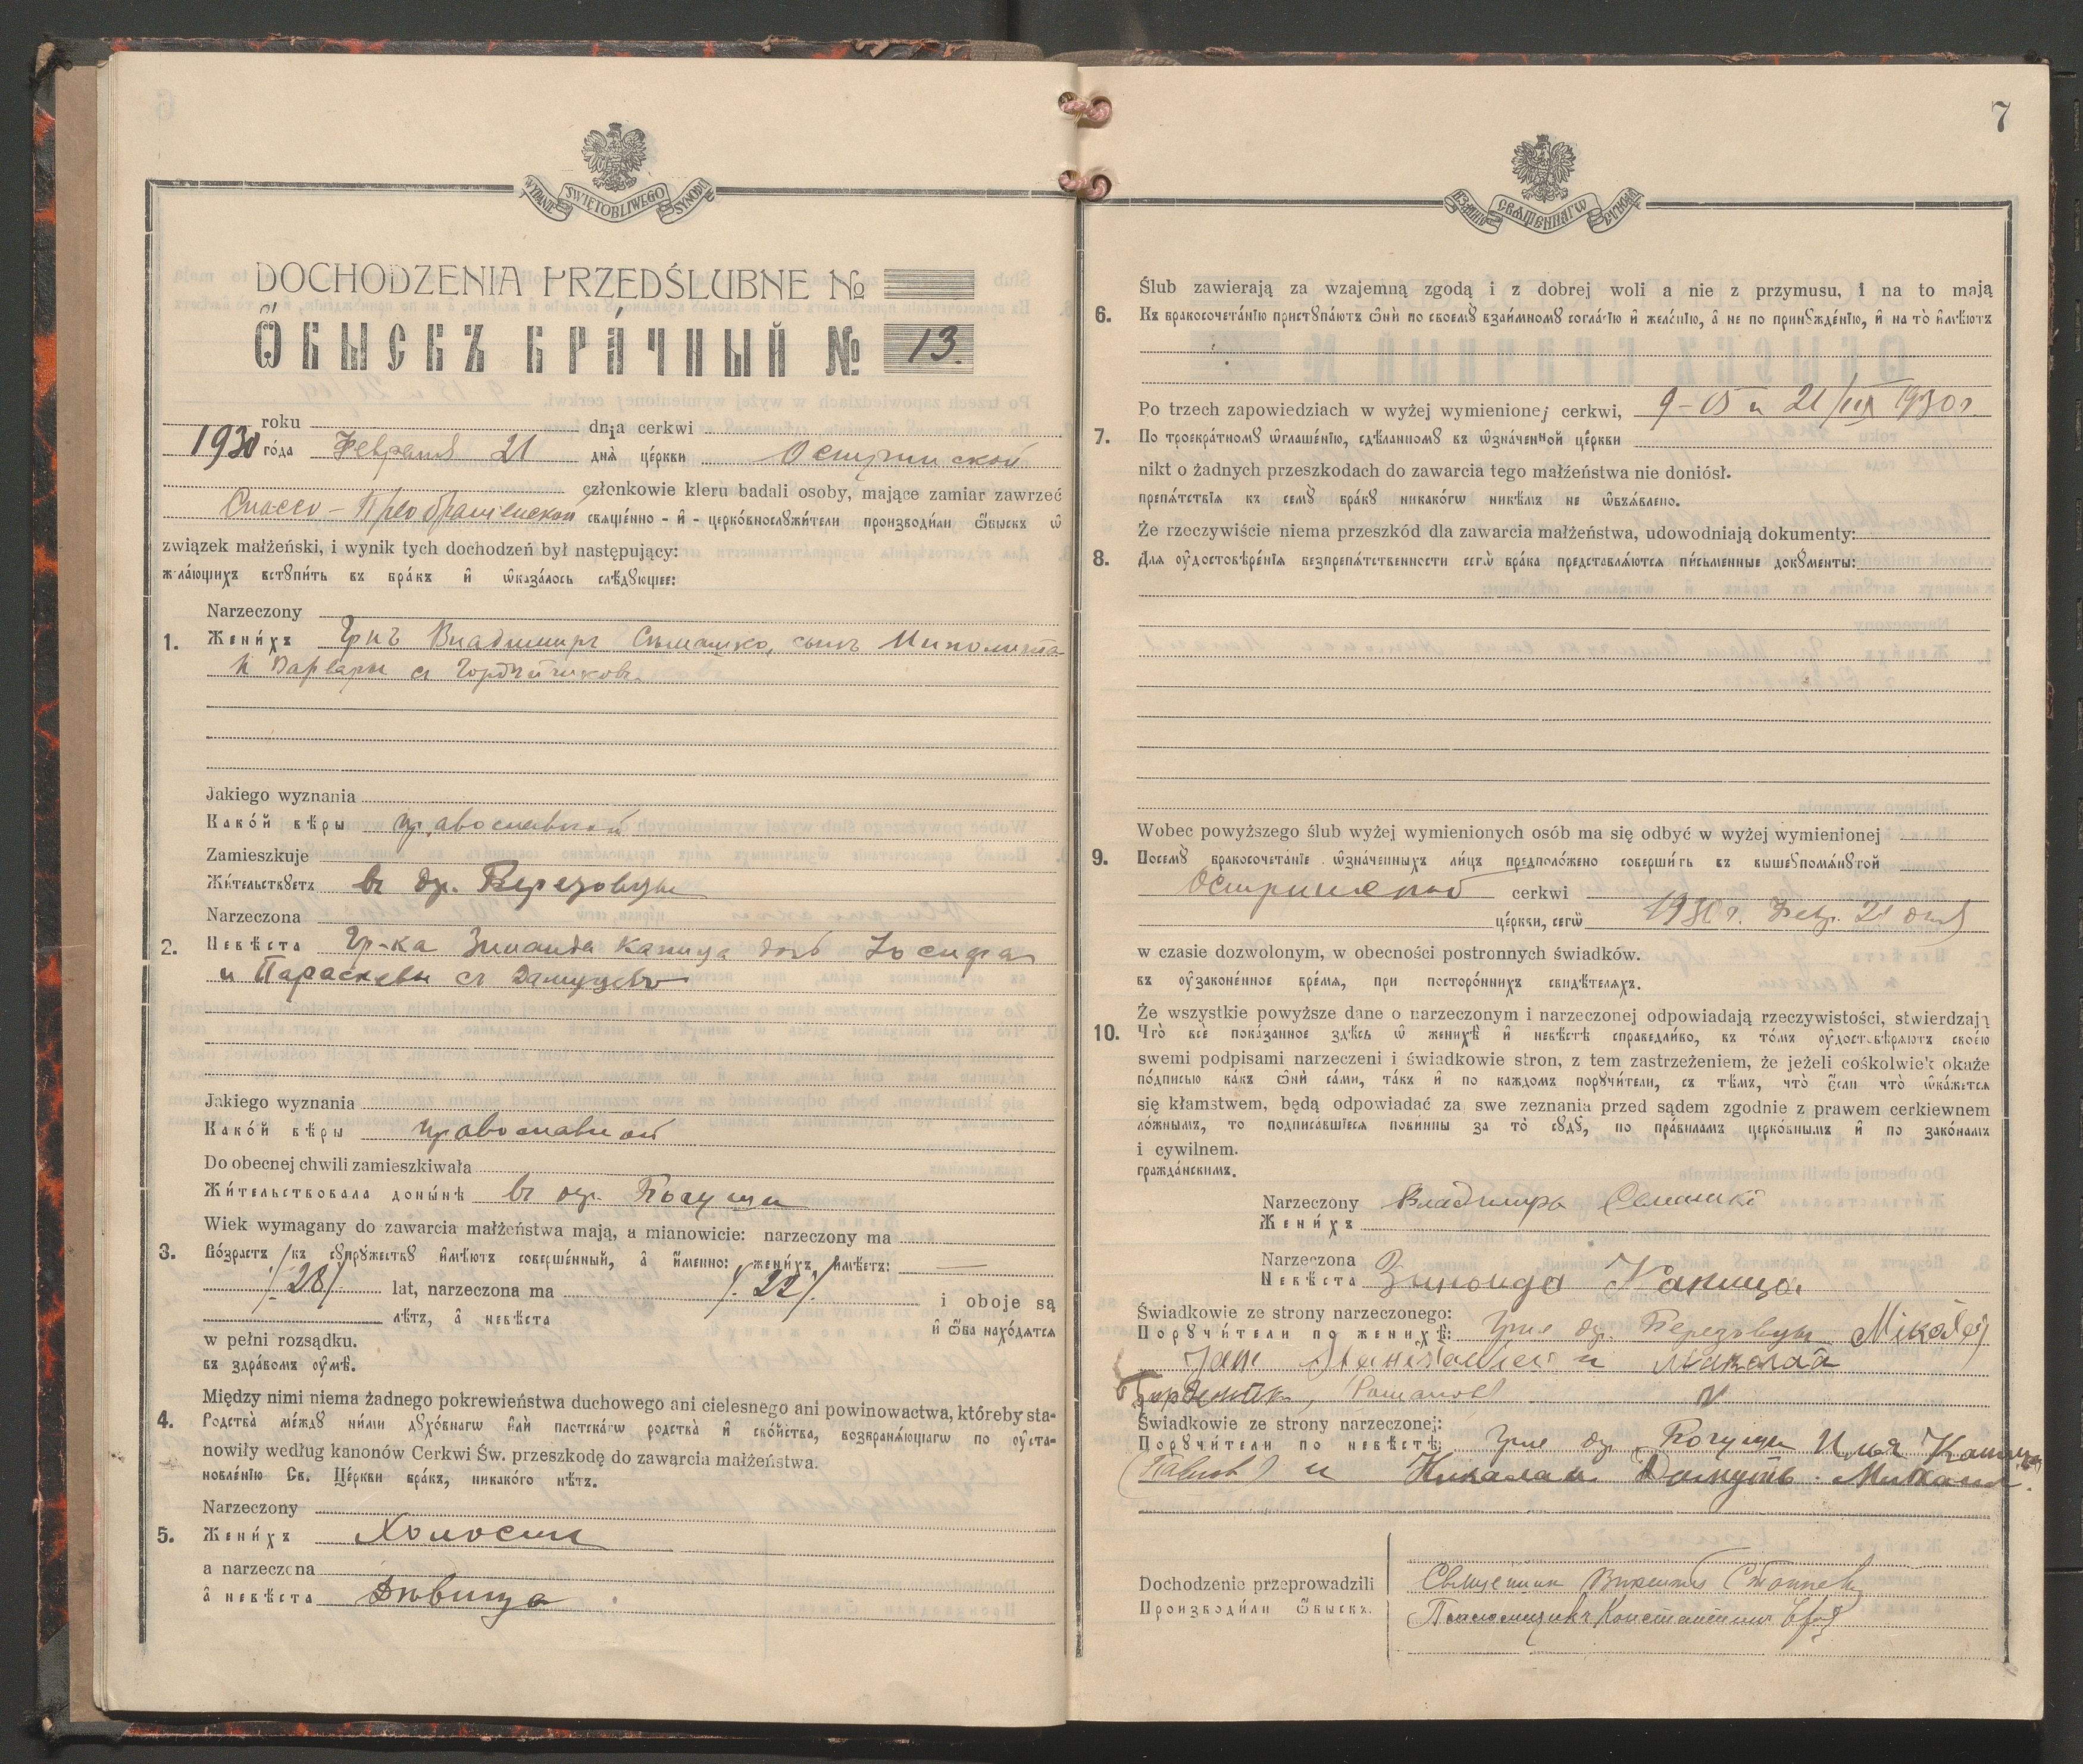 6
WYDANIE ŚWIĘTOBLIWEGO SYNODU
DOCHODZENIA PRZEDŚLUBNE №
Ѽбыскъ бра́чный № 13.
roku dnia cerkwi
1930 го́да Февраля 21 днѧ̀ це́ркви Остринской
członkowie kleru badali osoby, mające zamiar zawrzeć
Спасо-Преображенской свѧще́нно-и҆-церко́внослꙋжи́тели производи́ли ѻ҆́быскъ ѡ҆
związek małżeński, i wynik tych dochodzeń był następujący:
жела́ющихъ встꙋпи́ть въ бра́къ и҆ ѡ҆каза́лось слѣ́дꙋющее:
Narzeczony
1. Жени́хъ Гр-нъ Владимиръ Семашко, сынъ Ипполита
и Варвары
Jakiego wyznania
Како́й вѣ́ры православной
Zamieszkuje
Жи́тельствꙋетъ въ др. Березовцы
Narzeczona
2. Невѣ́ста Гр-ка Зинаида Капица дочь Іосифа
и Параскевы съ
Jakiego wyznania
Како́й вѣ́ры православной
Do obecnej chwili zamieszkiwała
Жи́тельствовала доны́нѣ въ др.
Wiek wymagany do zawarcia małżeństwa mają, a mianowicie: narzeczony ma
3. Во́зрастъ къ сꙋпрꙋ́жествꙋ и҆мѣ́ютъ соверше́нный, а҆ и҆́менно: жени́хъ и҆мѣ́етъ: —
/28/ lat, narzeczona ma /22/. i oboje są
лѣ́тъ, а҆ невѣ́ста и҆ ѻ҆́ба нахо́дѧтсѧ
w pełni rozsądku.
въ здра́вомъ оу҆мѣ̀.
Między nimi niema żadnego pokrewieństwa duchowego ani cielesnego ani powinowactwa, któreby sta-
4. Родства̀ ме́ждꙋ ни́ми дꙋхо́внагѡ и҆лѝ плотска́гѡ родства̀ и҆ сво́йства, возбранѧ́ющагѡ по оу҆ста-
nowiły według kanonów Cerkwi Św. przeszkodę do zawarcia małżeństwa.
новле́нїю Св. Це́ркви бра́къ, никако́го нѣ́тъ.
Narzeczony
5. Жени́хъ Холостъ
a narzeczona
а҆ невѣ́ста Дѣвица
7
Ślub zawierają za wzajemną zgodą i z dobrej woli a nie z przymusu, i na to mają
6. Къ бракосочета́нїю пристꙋпа́ютъ ѻ҆нѝ по своемꙋ̀ взаи́мномꙋ согла́сїю и҆ жела́нїю, а҆ не по принꙋжде́нїю, и҆ на то̀ и҆мѣ́ютъ
Po trzech zapowiedziach w wyżej wymienionej cerkwi, 9-15 и 21/II 1930 г.
7. По троекра́тномꙋ ѡ҆глаше́нїю, сдѣ́ланномꙋ въ ѡ҆зна́ченной це́ркви
nikt o żadnych przeszkodach do zawarcia tego małżeństwa nie doniósł.
препѧ́тствїѧ къ семꙋ̀ бра́кꙋ никако́гѡ никѣ́мъ не ѡ҆б̾ѧ́влено.
Że rzeczywiście niema przeszkód dla zawarcia małżeństwa, udowodniają dokumenty:
8. Длѧ оу҆достовѣре́нїѧ безпрепѧ́тственности сегѡ̀ бра́ка представлѧ́ютсѧ пи́сьменные докꙋме́нты:
Wobec powyższego ślub wyżej wymienionych osób ma się odbyć w wyżej wymienionej
9. Посемꙋ̀ бракосочета́нїе ѡ҆зна́ченныхъ ли́цъ предполо́жено соверши́ть въ вышеꙋпомѧ́нꙋтой
Остринской cerkwi
це́ркви, сегѡ̀ 1930 г. Февр. 21 дня
w czasie dozwolonym, w obecności postronnych świadków.
въ оу҆зако́не́нное вре́мѧ, при посторо́ннихъ свидѣ́телѧхъ.
Że wszystkie powyższe dane o narzeczonym i narzeczonej odpowiadają rzeczywistości, stwierdzają
10. Что̀ всѐ пока́занное здѣ́сь ѡ҆ женихѣ̀ и҆ невѣ́стѣ справедли́во, въ то́мъ оу҆достовѣрѧ́ютъ свое́ю
swemi podpisami narzeczeni i świadkowie stron, z tem zastrzeżeniem, że jeżeli cośkolwiek okaże
по́дписью ка́къ ѻ҆нѝ са́ми, та́къ и҆ по ка́ждомъ порꙋчи́тели, съ тѣ́мъ, что̀ є҆́сли что̀ ѡ҆ка́жетсѧ
się kłamstwem, będą odpowiadać za swe zeznania przed sądem zgodnie z prawem cerkiewnem
ло́жнымъ, то подписа́вшїесѧ пови́нны за то̀ сꙋдꙋ̀, по пра́виламъ церко́внымъ и҆ по зако́намъ
i cywilnem.
гражда́нскимъ.
Narzeczony Владимиръ Семашко
Жени́хъ
Narzeczona
Невѣ́ста Зинаида Капица
Świadkowie ze strony narzeczonego:
Порꙋчи́тели по женихѣ̀: др. Березовцы Mikołaj
Jan и Николай
Świadkowie ze strony narzeczonej:
Порꙋчи́тели по невѣ́стѣ: др. Илья Капица
(Павловъ) и Николай Михаил.
Dochodzenie przeprowadzili Священник
Производи́ли ѻ҆́быскъ. Псаломщикъ Константинъ